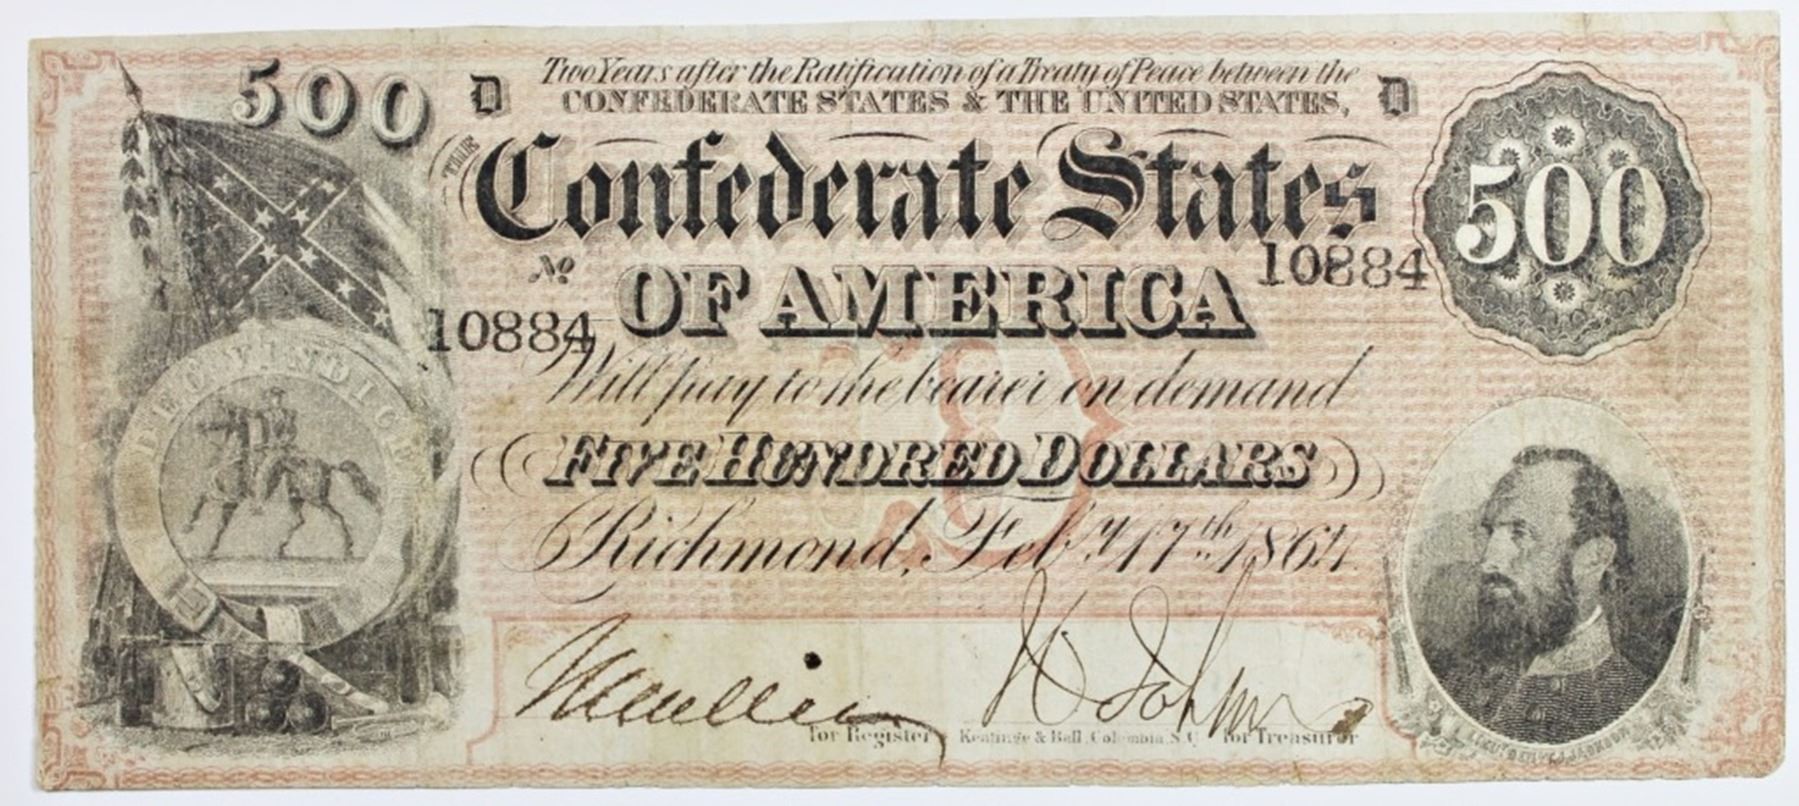 500
D Two Years after the Ratification of a Treaty of Peace between the D
CONFEDERATE STATES & THE UNITED STATES,
THE Confederate States
500
No. OF AMERICA 10884
10884
Will pay to the bearer on demand
FIVE HUNDRED DOLLARS
Richmond, Feby. 17th 1864.
DEO VINDICE
D
for Register Keatinge & Ball, Columbia, S.C. for Treasurer
LIEUT. GEN. T.J. JACKSON